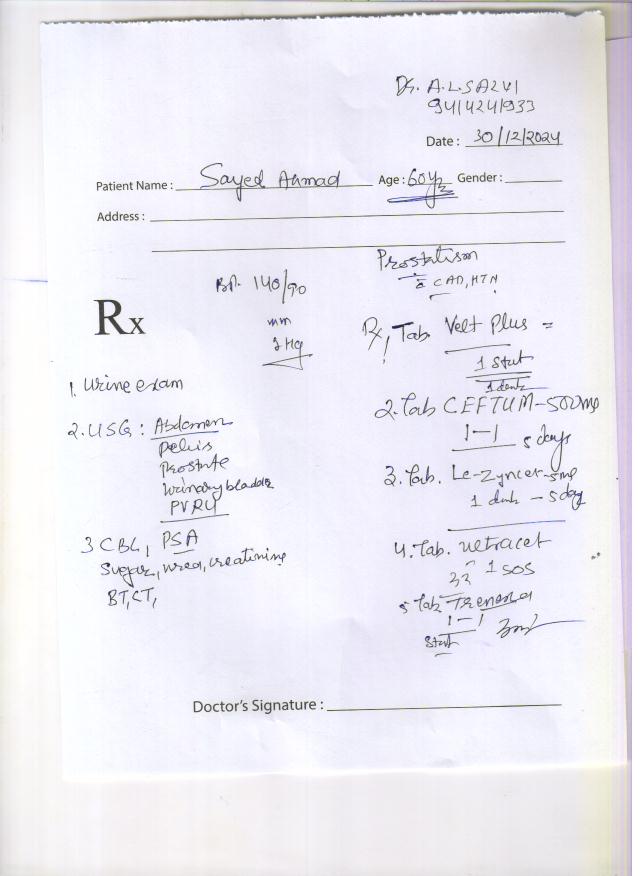 Dr. A.L. SAZVI
9414241933
Date : 30/12/2024
Patient Name : Sayed Ahmad Age : 60yr Gender :
Address :
Prostatism
c̄ CAD, HTN
BP. 140/90
mm
Hg
Rx
Rx, Tab. Velt Plus
1 Stat
1. Urine exam
2. USG : Abdomen
Pelvis
Prostate
Urinary bladder
PVRU
3 CBC, PSA
Sugar, urea, creatinine
BT, CT,
2. Tab CEFTUM-500mg
1-1 5 days
3. Tab. Le-Zyncet-5mg
1 - 5 day
4. Tab. Ultracet
1 SOS
5 Tab Trenaxa
1-1
Stat
Doctor's Signature :